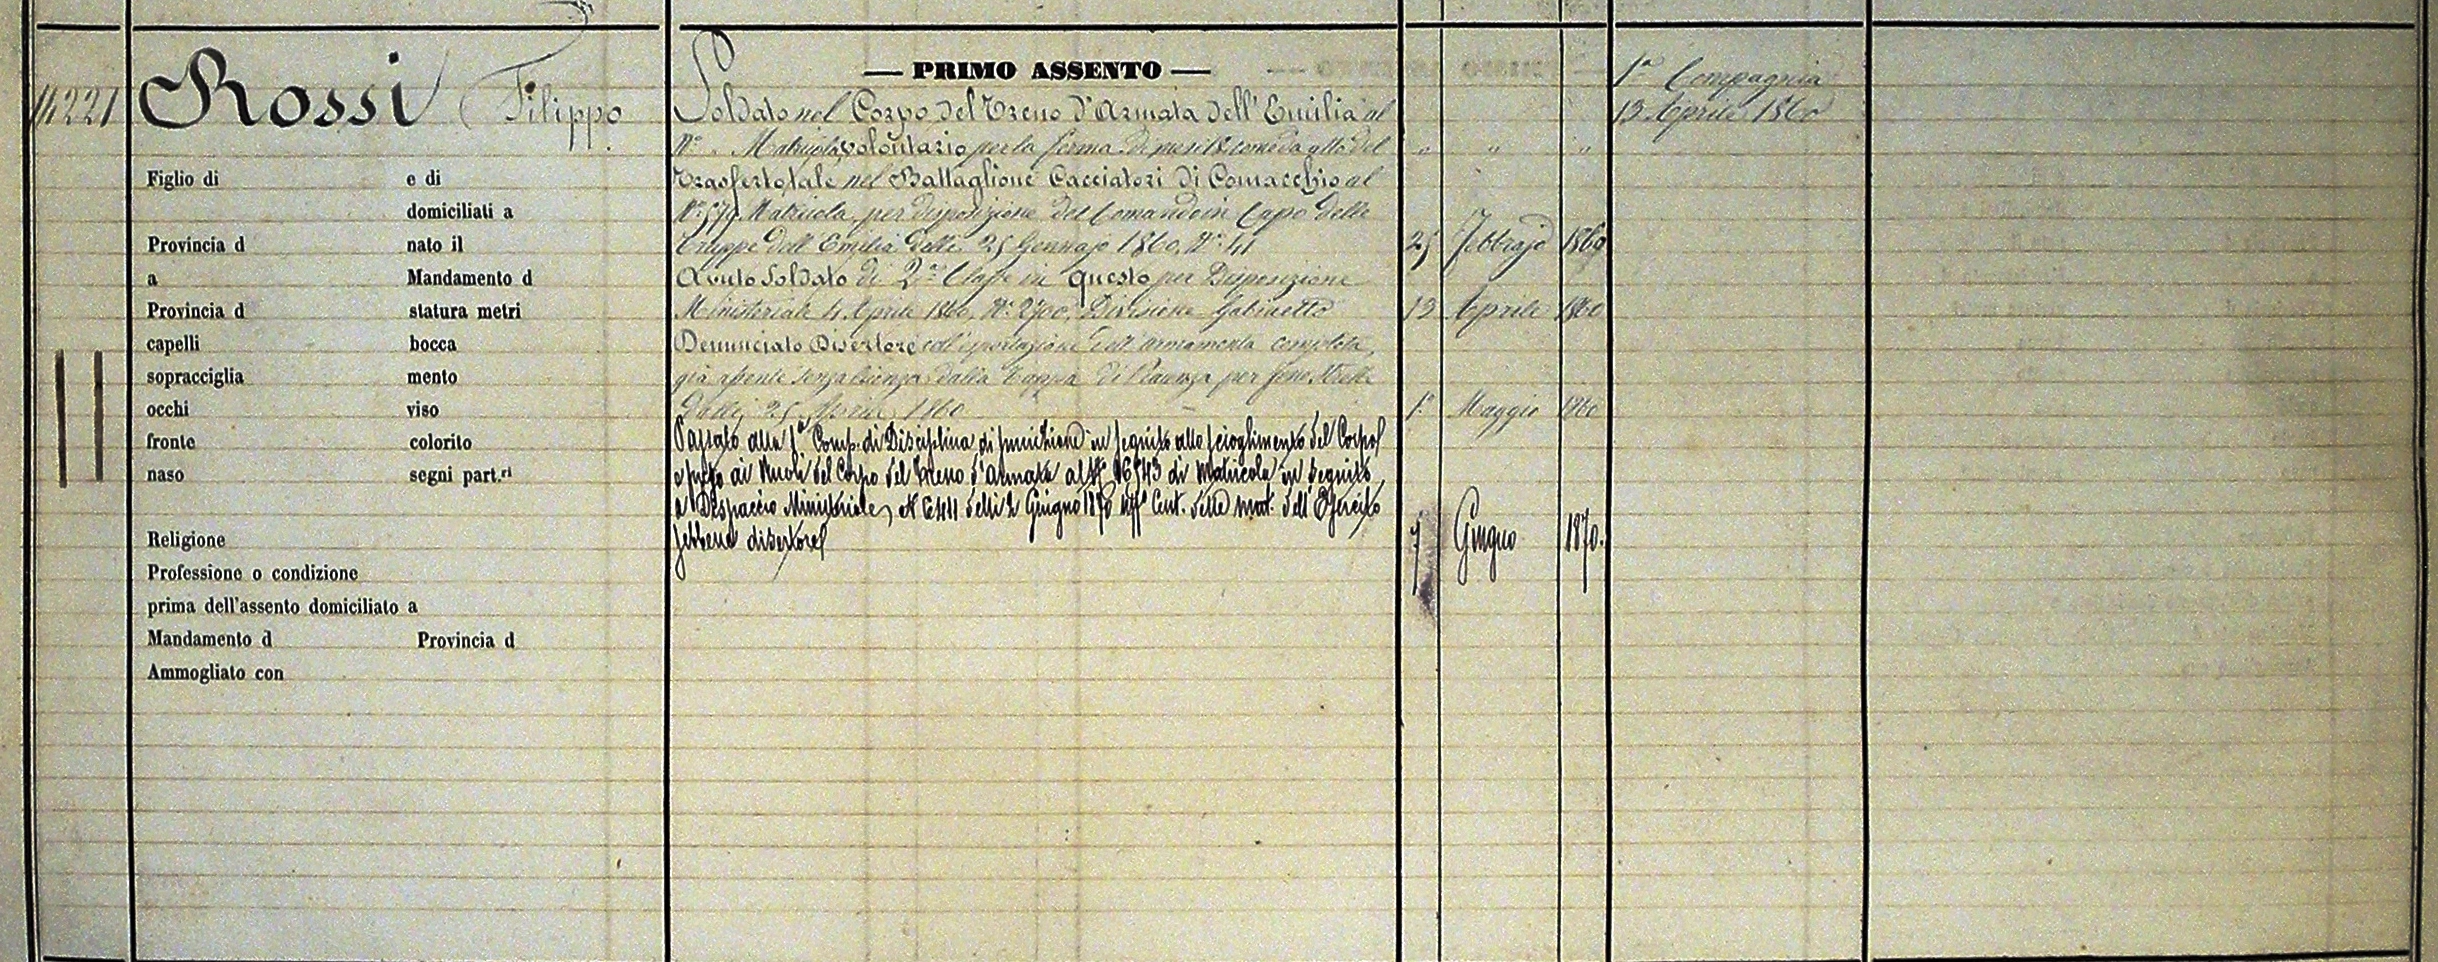 14221
Rossi Filippo
Figlio di e di
domiciliati a
Provincia d nato il
a Mandamento d
Provincia d statura metri
capelli bocca
sopracciglia mento
occhi viso
fronte colorito
naso segni part.ri
Religione
Professione o condizione
prima dell'assento domiciliato a
Mandamento d Provincia d
Ammogliato con
— PRIMO ASSENTO —
Soldato nel Corpo del Treno d'Armata dell'Emilia al
N° " Matricola, volontario per la ferma di mesi 18 come da atto del " " "
Trasfertotale nel Battaglione Cacciatori di Comacchio al
N° 579 Matricola, per disposizione del Comando in Capo delle
Truppe dell'Emilia delli 25 Gennajo 1860, N° 41 25 Febbrajo 1860
Avuto Soldato di 2ª Classe in questo per Disposizione
Ministeriale 4 Aprile 1860, N° 2700, Divisione Gabinetto 13 Aprile 1860
Denunciato Disertore coll'esportazione dell'armamento completo,
già assente senza licenza dalla Tappa di Piacenza per Fenestrelle
dalli 25 Aprile 1860 1° Maggio 1860
Passato alla 1ª Comp. di Disciplina di punizione in seguito allo scioglimento del Corpo
ai Ruoli del Corpo del Treno d'armata al N° 16543 di Matricola in seguito
a Dispaccio Ministeriale, N° delli 2 Giugno 1870 Uff° Cent. delle mat. dell'Esercito
sebbene disertore 7 Giugno 1870.
1ª Compagnia
13 Aprile 1860